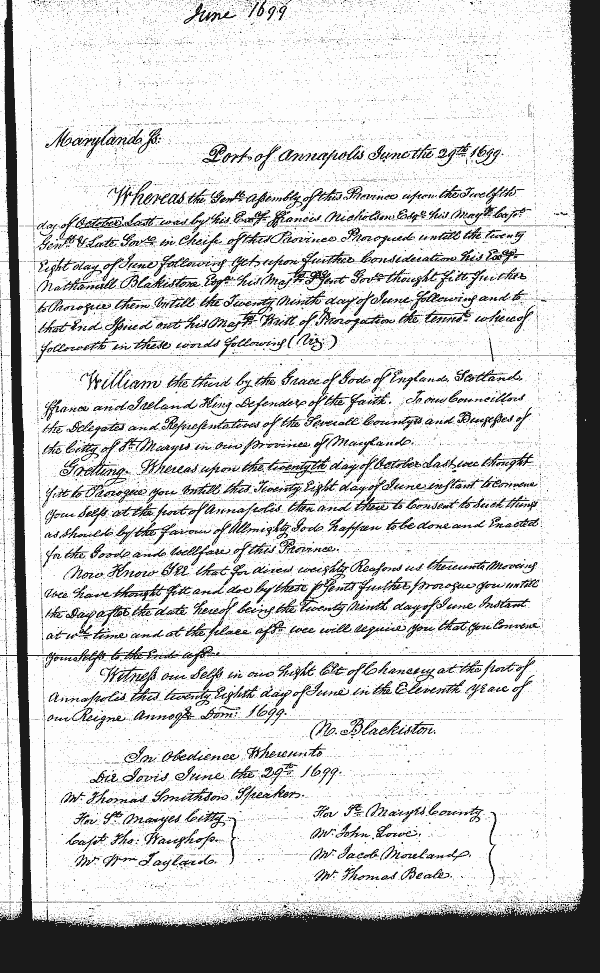 June 1699
Maryland Ss.
Port of Annapolis June the 29th 1699.
Whereas the Genll Assembly of this Province upon the Twelfth
day of October Last was by his Excy ffrancis Nicholson Esqr his Majts Capt
Genll & Late Govr in Cheife of this Province Prorogued untill the twenty
Eight day of June following Yet upon further Consideration his Excy
Nathaniell Blakiston Esqr his Majts Govr thought fitt further
to Prorogue them Untill the Twenty Ninth day of June following and to
that End Issued out his Majts Writt of Prorogation the tennor whereof
followeth in these words following (Viz.)
William the third by the Grace of God of England, Scotland,
ffrance and Ireland King Defender of the faith. To our Councillors
the Delegates and Representatives of the Severall Countyes and Burgesses of
the Citty of St Maryes in our Province of Maryland.
Greeting. Whereas upon the twentyth day of October Last wee thought
fitt to Prorogue you Untill this Twenty Eight day of June instant to convene
your Selfs at the port of Annapolis then and there to Consent to Such things
as should by the favour of Almighty God happen to be done and Enacted
for the Good and wellfare of this Province.
Now Know Yee that for divers weighty Reasons us thereunto Moving
Wee have thought fitt and doe by these prsents further prorogue you untill
the Day after the date hereof being the Twenty Ninth day of June Instant
at wch time and at the place afsd wee will require you that you Convene
your Selfs to the End afsd.
Witness our Selfs in our hight Crt of Chancery at the port of
Annapolis this twenty Eighth day of June in the Eleventh yeare of
our Reigne Annoqe Dom: 1699.
N. Blackiston.
In Obedience Whereunto
Die Jovis June the 29th 1699.
Mr Thomas Smithson Speaker.
For St Maryes Citty
Capt Tho: Waughop.
Mr Wm Taylard.
For St Maryes County
Mr John Lowe.
Mr Jacob Moreland.
Mr Thomas Beale.